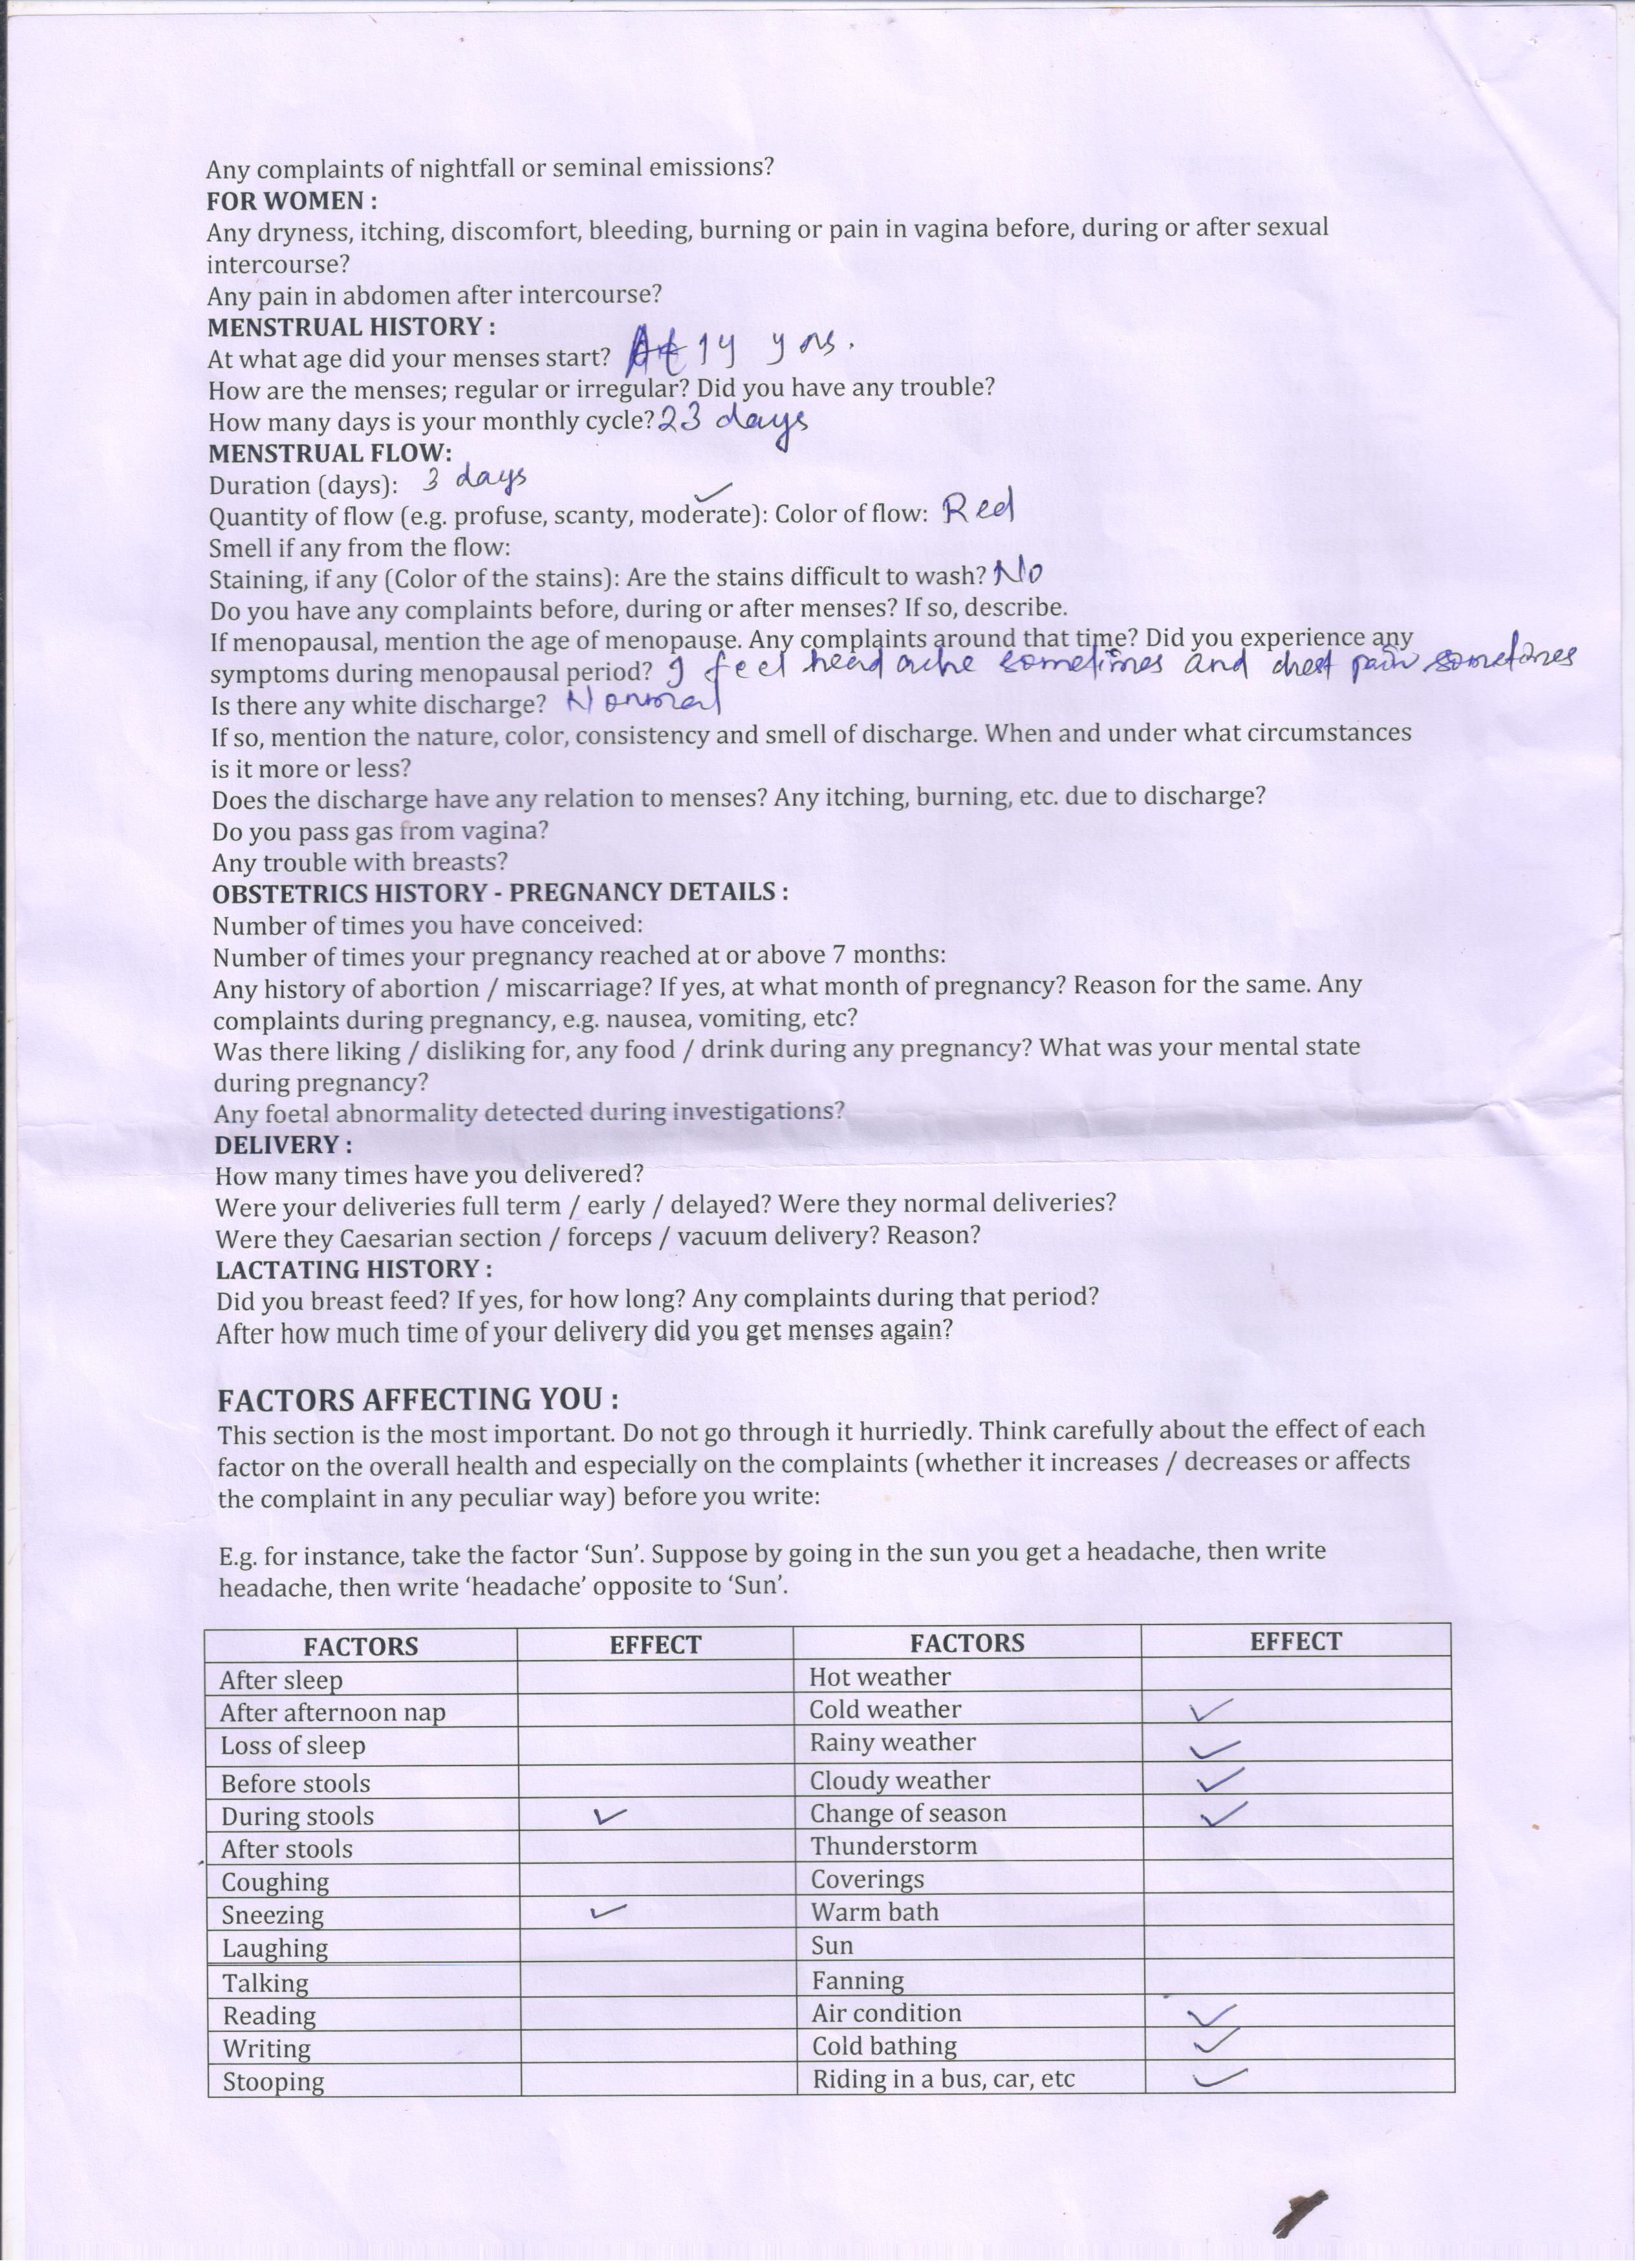 Any complaints of nightfall or seminal emissions?
FOR WOMEN :
Any dryness, itching, discomfort, bleeding, burning or pain in vagina before, during or after sexual
intercourse?
Any pain in abdomen after intercourse?
MENSTRUAL HISTORY :
At what age did your menses start? At 14 yrs.
How are the menses; regular or irregular? Did you have any trouble?
How many days is your monthly cycle? 23 days
MENSTRUAL FLOW:
Duration (days): 3 days
Quantity of flow (e.g. profuse, scanty, moderate): Color of flow: Red
Smell if any from the flow:
Staining, if any (Color of the stains): Are the stains difficult to wash? No
Do you have any complaints before, during or after menses? If so, describe.
If menopausal, mention the age of menopause. Any complaints around that time? Did you experience any
symptoms during menopausal period? I feel head ache sometimes and chest pain sometimes
Is there any white discharge? Normal
If so, mention the nature, color, consistency and smell of discharge. When and under what circumstances
is it more or less?
Does the discharge have any relation to menses? Any itching, burning, etc. due to discharge?
Do you pass gas from vagina?
Any trouble with breasts?
OBSTETRICS HISTORY - PREGNANCY DETAILS :
Number of times you have conceived:
Number of times your pregnancy reached at or above 7 months:
Any history of abortion / miscarriage? If yes, at what month of pregnancy? Reason for the same. Any
complaints during pregnancy, e.g. nausea, vomiting, etc?
Was there liking / disliking for, any food / drink during any pregnancy? What was your mental state
during pregnancy?
Any foetal abnormality detected during investigations?
DELIVERY :
How many times have you delivered?
Were your deliveries full term / early / delayed? Were they normal deliveries?
Were they Caesarian section / forceps / vacuum delivery? Reason?
LACTATING HISTORY :
Did you breast feed? If yes, for how long? Any complaints during that period?
After how much time of your delivery did you get menses again?
FACTORS AFFECTING YOU :
This section is the most important. Do not go through it hurriedly. Think carefully about the effect of each
factor on the overall health and especially on the complaints (whether it increases / decreases or affects
the complaint in any peculiar way) before you write:
E.g. for instance, take the factor ‘Sun’. Suppose by going in the sun you get a headache, then write
headache, then write ‘headache’ opposite to ‘Sun’.
FACTORS EFFECT FACTORS EFFECT
After sleep Hot weather
After afternoon nap Cold weather ✓
Loss of sleep Rainy weather ✓
Before stools Cloudy weather ✓
During stools ✓ Change of season ✓
After stools Thunderstorm
Coughing Coverings
Sneezing ✓ Warm bath
Laughing Sun
Talking Fanning
Reading Air condition ✓
Writing Cold bathing ✓
Stooping Riding in a bus, car, etc ✓